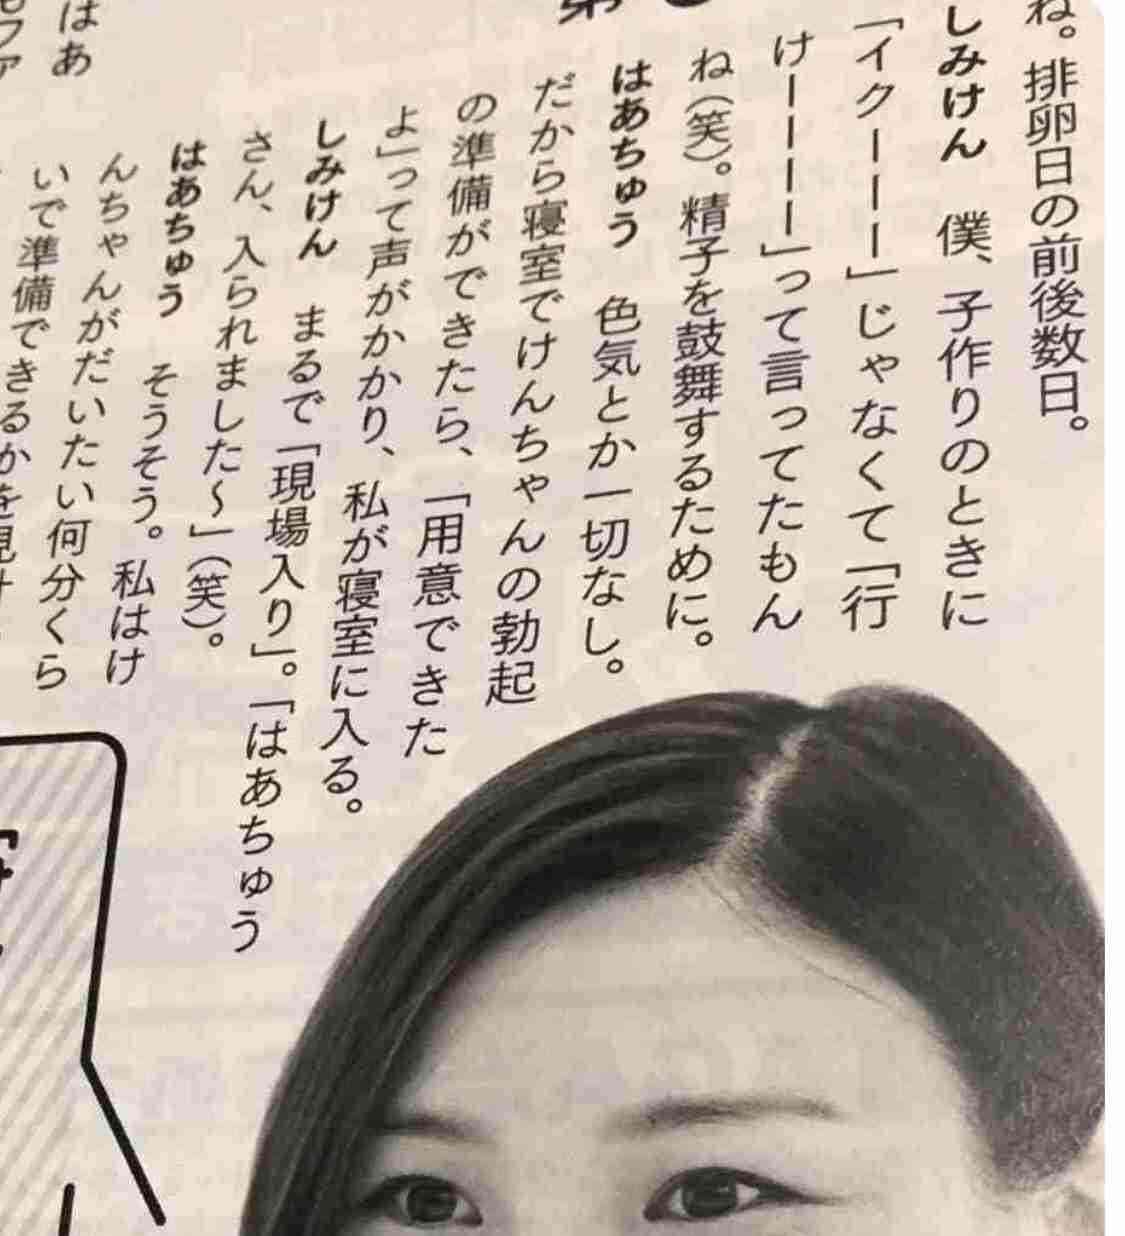 ね。排卵日の前後数日。
しみけん　僕、子作りのときに
「イクーーー」じゃなくて「行
けーーーー」って言ってたもん
ね(笑)。精子を鼓舞するために。
はあちゅう　色気とか一切なし。
だから寝室でけんちゃんの勃起
の準備ができたら、「用意できた
よ」って声がかかり、私が寝室に入る。
しみけん　まるで「現場入り」。「はあちゅう
さん、入られました〜」(笑)。
はあちゅう　そうそう。私はけ
んちゃんがだいたい何分くら
いで準備できるかを
はあ